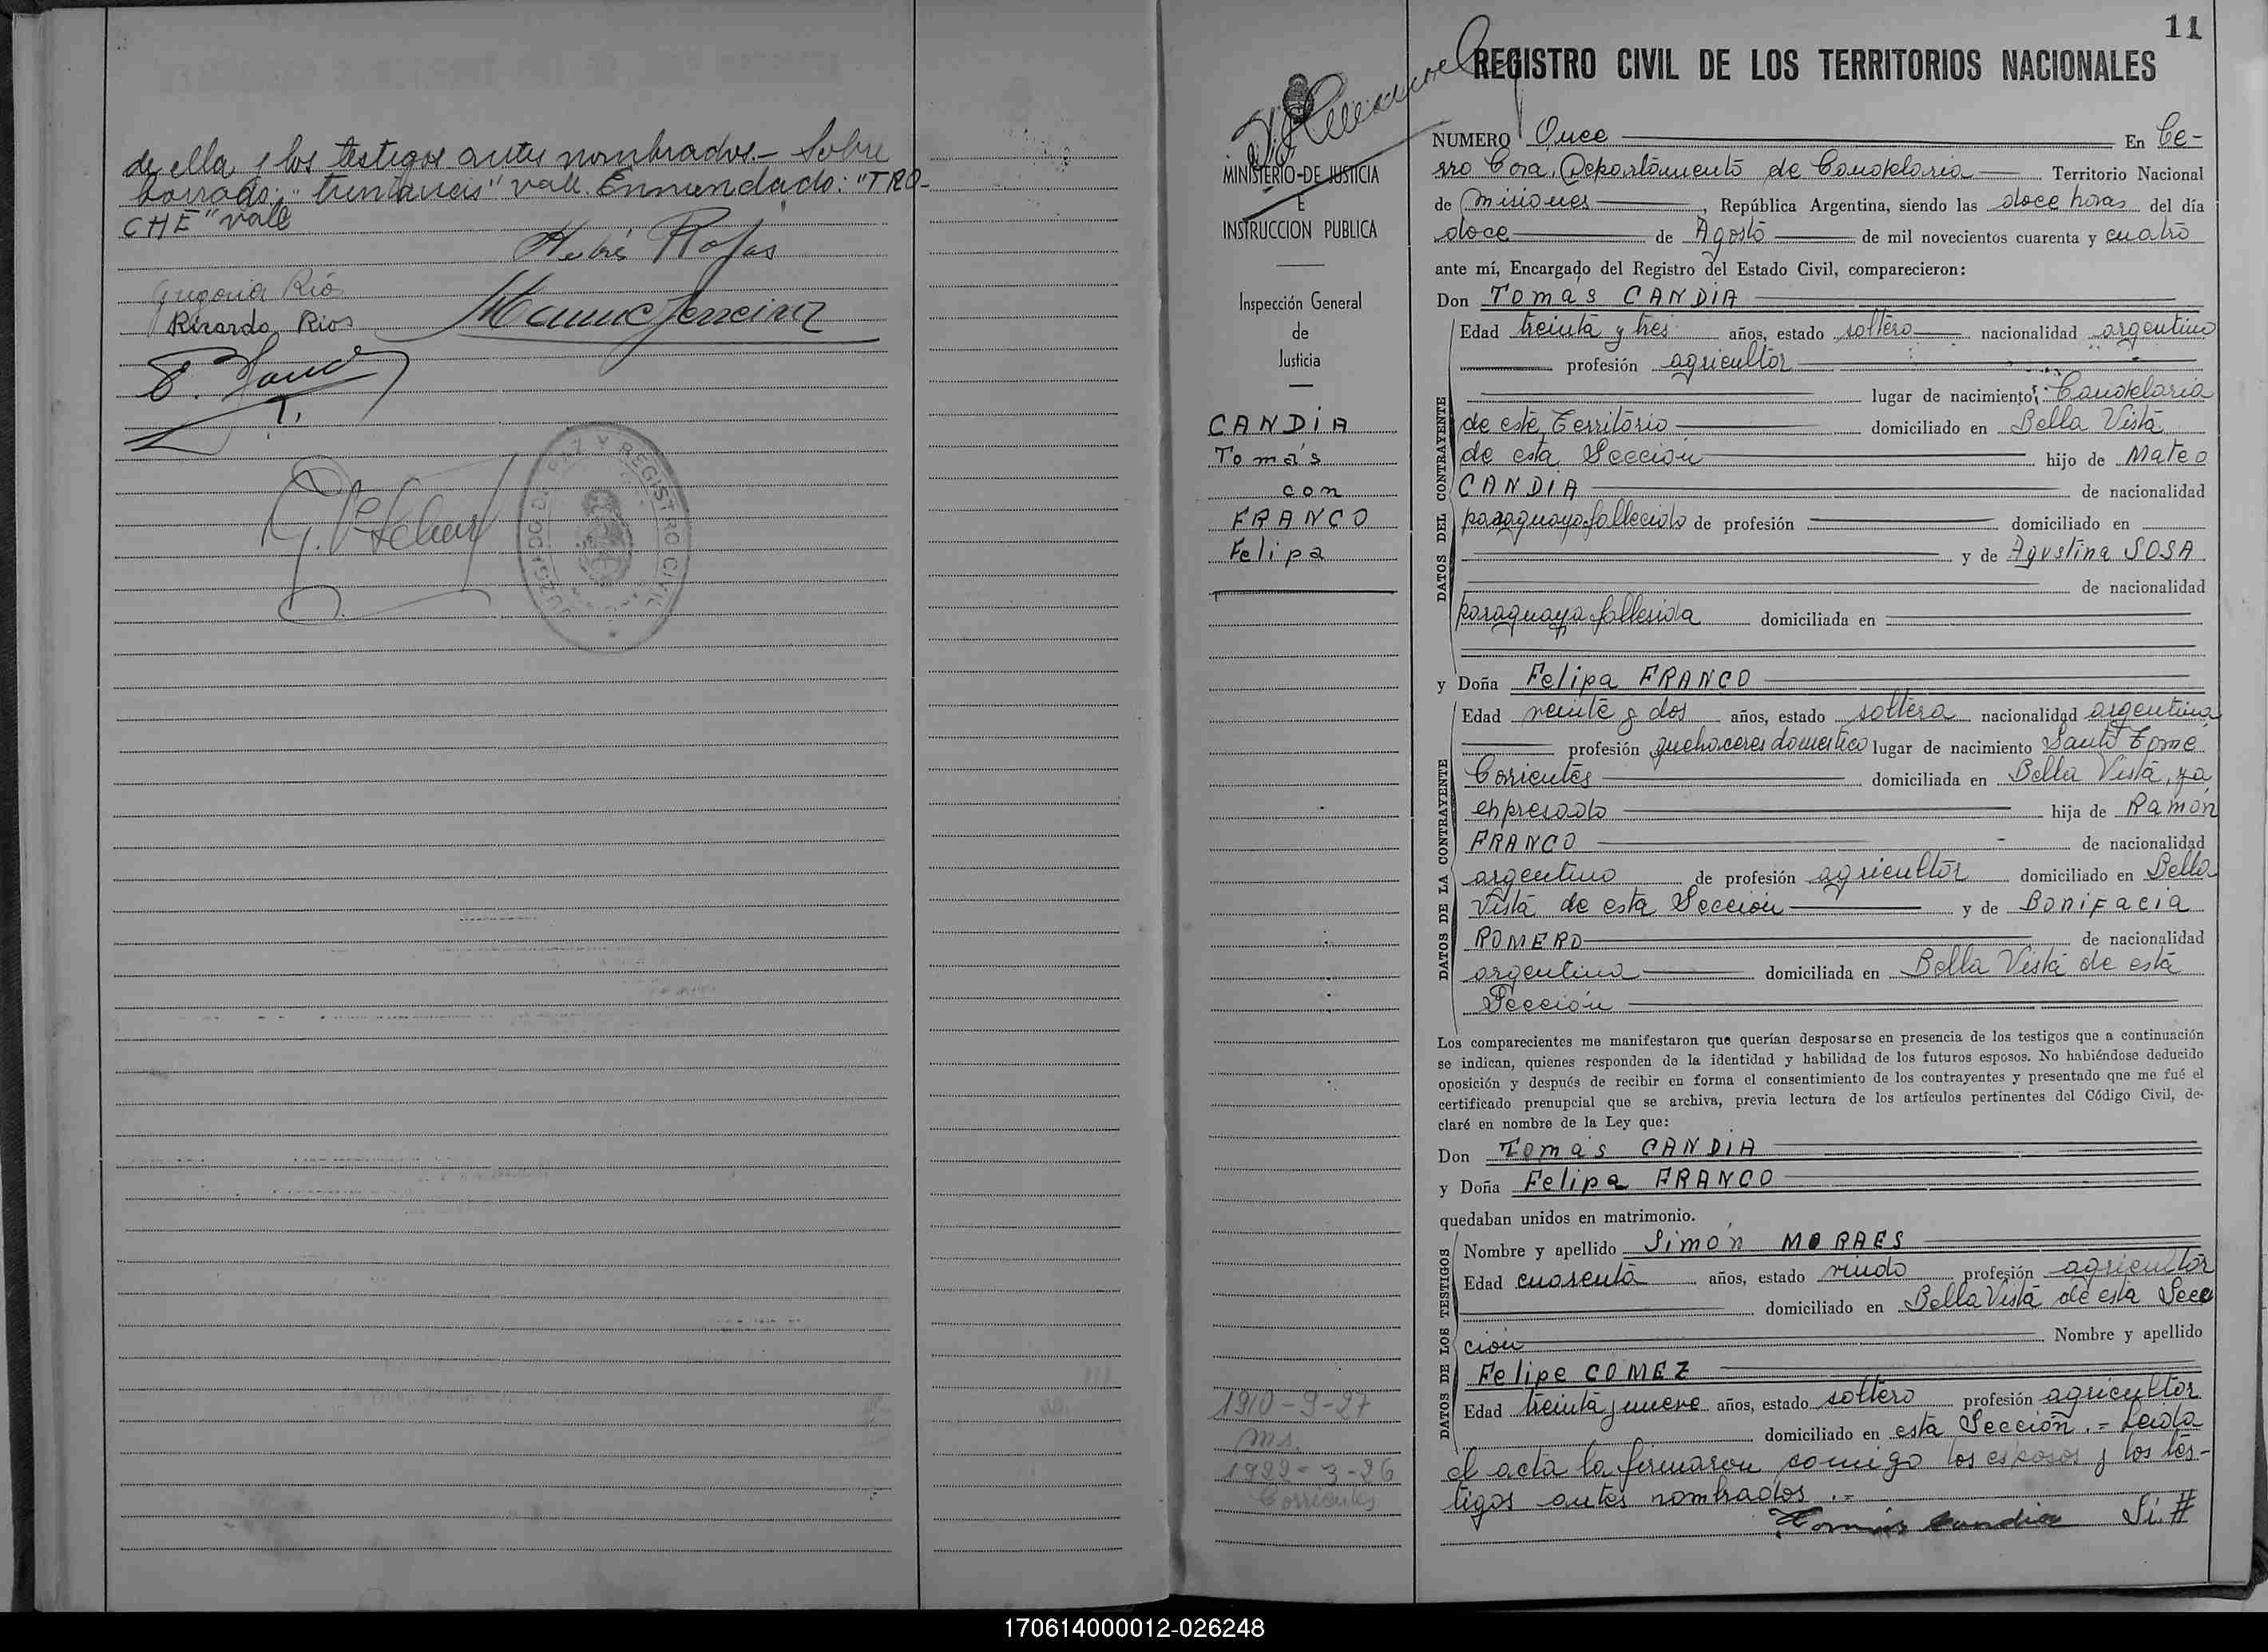 de ella y los testigos antes nombrados.- Sobre
borrado: "treintaseis" vale. Enmendado: "TRO-
CHE" vale
Andrés Rojas
Gregoria Ríos
Ricardo Rios
11
REGISTRO CIVIL DE LOS TERRITORIOS NACIONALES
MINISTERIO DE JUSTICIA
E
INSTRUCCION PUBLICA
Inspección General
de
Justicia
CANDIA
Tomás
con
FRANCO
Felipa
1910-9-27
ms.
1922-3-26
Corrientes
NUMERO Once En Ce-
rro Cora, Departamento de Candelaria Territorio Nacional
de Misiones, República Argentina, siendo las doce horas del día
doce de Agosto de mil novecientos cuarenta y cuatro
ante mí, Encargado del Registro del Estado Civil, comparecieron:
Don Tomás CANDIA
DATOS DEL CONTRAYENTE
Edad treinta y tres años, estado soltero nacionalidad argentino
profesión agricultor
lugar de nacimiento Candelaria
de este Territorio domiciliado en Bella Vista
de esta Sección hijo de Mateo
CANDIA de nacionalidad
paraguayo fallecido de profesión domiciliado en
y de Agustina SOSA
de nacionalidad
paraguaya fallesida domiciliada en
y Doña Felipa FRANCO
DATOS DE LA CONTRAYENTE
Edad veinte y dos años, estado soltera nacionalidad argentina
profesión quehaceres domestico lugar de nacimiento Santo Tomé
Corrientes domiciliada en Bella Vista, ya
expresado hija de Ramón
FRANCO de nacionalidad
argentino de profesión agricultor domiciliado en Bella
Vista de esta Sección y de Bonifacia
ROMERO de nacionalidad
argentina domiciliada en Bella Vista de esta
Sección
Los comparecientes me manifestaron que querían desposarse en presencia de los testigos que a continuación
se indican, quienes responden de la identidad y habilidad de los futuros esposos. No habiéndose deducido
oposición y después de recibir en forma el consentimiento de los contrayentes y presentado que me fué el
certificado prenupcial que se archiva, previa lectura de los artículos pertinentes del Código Civil, de-
claré en nombre de la Ley que:
Don Tomás CANDIA
y Doña Felipa FRANCO
quedaban unidos en matrimonio.
DATOS DE LOS TESTIGOS
Nombre y apellido Simón MORAES
Edad cuarenta años, estado viudo profesión agricultor
domiciliado en Bella Vista de esta Secc
ción Nombre y apellido
Felipe GOMEZ
Edad treinta y nueve años, estado soltero profesión agricultor
domiciliado en esta Sección.= Leida
el acta la firmaron comigo los esposos y los tes-
tigos antes nombrados .=
Tomás Candia Si. #
170614000012-026248